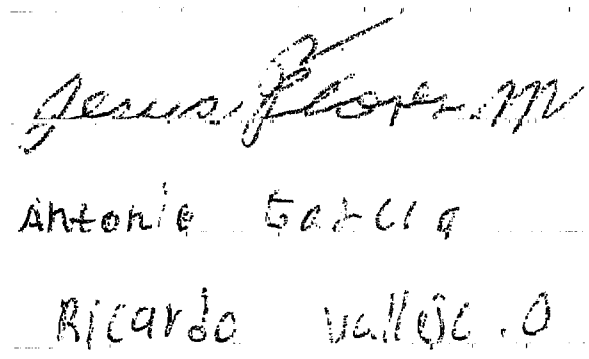 Jesus Flores.M
Antonio Garcia
Ricardo Vallejo.O